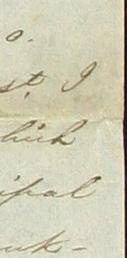 o.
st I
hich
ipal
uk-